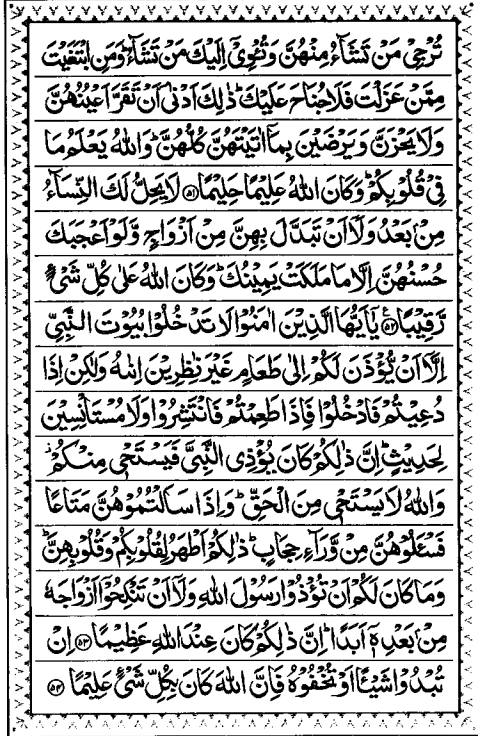 تُرْجِيْ مَنْ تَشَآءُ مِنْهُنَّ وَتُـْٔوِيْٓ اِلَيْكَ مَنْ تَشَآءُ ؕ وَمَنِ ابْتَغَيْتَ
مِمَّنْ عَزَلْتَ فَلَا جُنَاحَ عَلَيْكَ ؕ ذٰلِكَ اَدْنٰٓى اَنْ تَقَرَّ اَعْيُنُهُنَّ
وَلَا يَحْزَنَّ وَيَرْضَيْنَ بِمَآ اٰتَيْتَهُنَّ كُلُّهُنَّ ؕ وَاللّٰهُ يَعْلَمُ مَا
فِيْ قُلُوْبِكُمْ ؕ وَكَانَ اللّٰهُ عَلِيْمًا حَلِيْمًا ۝۵۱ لَا يَحِلُّ لَكَ النِّسَآءُ
مِنْۢ بَعْدُ وَلَآ اَنْ تَبَدَّلَ بِهِنَّ مِنْ اَزْوَاجٍ وَّلَوْ اَعْجَبَكَ
حُسْنُهُنَّ اِلَّا مَا مَلَكَتْ يَمِيْنُكَ ؕ وَكَانَ اللّٰهُ عَلٰى كُلِّ شَيْءٍ
رَّقِيْبًا ۝۵۲ يٰٓاَيُّهَا الَّذِيْنَ اٰمَنُوْا لَا تَدْخُلُوْا بُيُوْتَ النَّبِيِّ
اِلَّآ اَنْ يُّؤْذَنَ لَكُمْ اِلٰى طَعَامٍ غَيْرَ نٰظِرِيْنَ اِنٰىهُ وَلٰكِنْ اِذَا
دُعِيْتُمْ فَادْخُلُوْا فَاِذَا طَعِمْتُمْ فَانْتَشِرُوْا وَلَا مُسْتَاْنِسِيْنَ
لِحَدِيْثٍ ؕ اِنَّ ذٰلِكُمْ كَانَ يُؤْذِى النَّبِيَّ فَيَسْتَحْيٖ مِنْكُمْ ؗ
وَاللّٰهُ لَا يَسْتَحْيٖ مِنَ الْحَقِّ ؕ وَاِذَا سَاَلْتُمُوْهُنَّ مَتَاعًا
فَسْـَٔلُوْهُنَّ مِنْ وَّرَآءِ حِجَابٍ ؕ ذٰلِكُمْ اَطْهَرُ لِقُلُوْبِكُمْ وَقُلُوْبِهِنَّ ؕ
وَمَا كَانَ لَكُمْ اَنْ تُؤْذُوْا رَسُوْلَ اللّٰهِ وَلَآ اَنْ تَنْكِحُوْٓا اَزْوَاجَهٗ
مِنْۢ بَعْدِهٖٓ اَبَدًا ؕ اِنَّ ذٰلِكُمْ كَانَ عِنْدَ اللّٰهِ عَظِيْمًا ۝۵۳ اِنْ
تُبْدُوْا شَيْـًٔا اَوْ تُخْفُوْهُ فَاِنَّ اللّٰهَ كَانَ بِكُلِّ شَيْءٍ عَلِيْمًا ۝۵۴